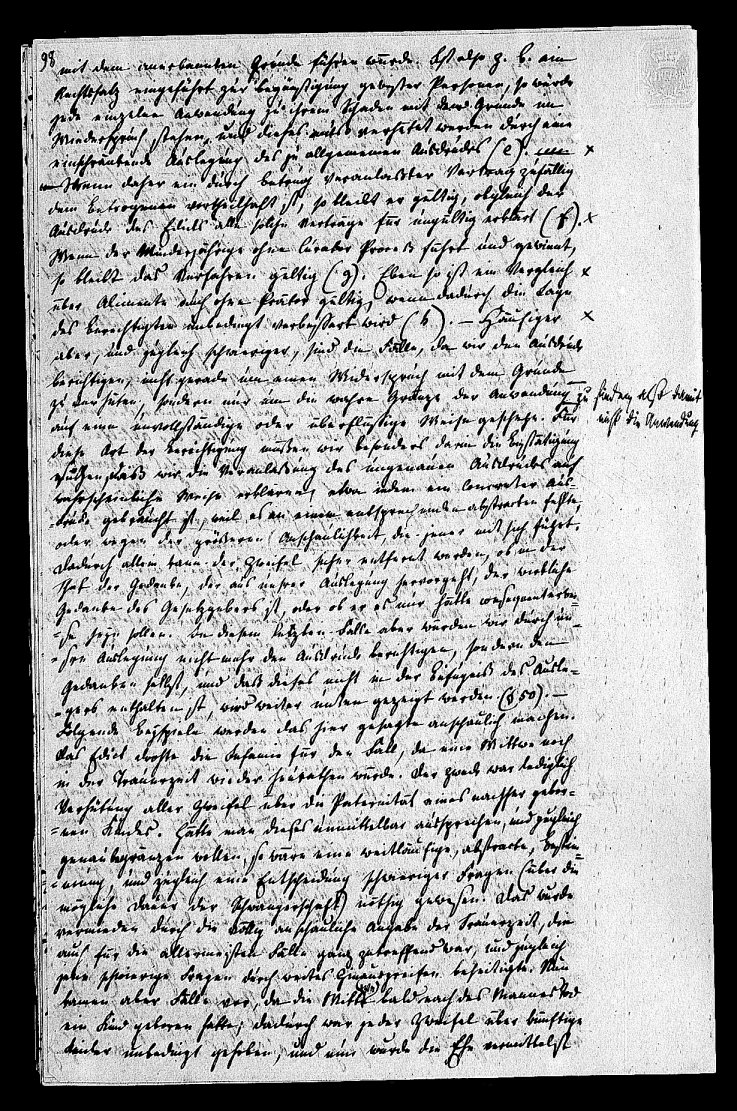 98
mit dem anerkannten Grunde führen würde. Ist also z. B. ein
Rechtssatz eingeführt zur Begünstigung gewisser Personen, so würde
jede einzelne Anwendung zu ihrem Schaden mit dem Grunde im
Widerspruch stehen, und dieses muß verhütet werden durch eine
einschränkende Auslegung des zu allgemeinen Ausdrucks (e). ×
Wenn daher ein durch Betrug veranlaßter Vertrag zufällig
dem Betrogenen vortheilhaft ist, so bleibt er gültig, obgleich der
Ausdruck des Edicts alle solche Verträge für ungültig erklärt (f). ×
Wenn der Minderjährige ohne Curator Proceß führt und gewinnt,
so bleibt das Verfahren gültig (g). Eben so ist ein Vergleich ×
über Alimente auch ohne Prätor gültig, wenn dadurch die Lage
des Berechtigten unbedingt verbessert wird (h). – Häufiger ×
aber, und zugleich schwieriger, sind die Fälle, da wir den Ausdruck
berichtigen, nicht gerade um einen Widerspruch mit dem Grunde
zu verhüten, sondern nur um die wahre Gränze der Anwendung zu finden, also damit
nicht die Anwendung
auf eine unvollständige oder überflüssige Weise geschehe. Für
diese Art der Berichtigung müssen wir besonders darin die Bestätigung
suchen, daß wir die Veranlassung des ungenauen Ausdrucks auf
wahrscheinliche Weise erklären, etwa indem ein concreter Aus-
druck gebraucht ist, weil es an einem entsprechenden abstracten fehlte,
oder wegen der größeren Anschaulichkeit, die jener mit sich führt.
Dadurch allein kann der Zweifel sicher entfernt werden, ob in der
That der Gedanke, der aus unsrer Auslegung hervorgeht, der wirkliche
Gedanke des Gesetzgebers ist, oder ob er es nur hätte consequenterwei-
se seyn sollen. In diesem letzten Falle aber würden wir durch un-
sre Auslegung nicht mehr den Ausdruck berichtigen, sondern den
Gedanken selbst, und daß dieses nicht in der Befugniß des Ausle-
gers enthalten ist, wird weiter unten gezeigt werden (§ 50). –
Folgende Beyspiele werden das hier gesagte anschaulich machen.
Das Edict drohte die Infamie für den Fall, da eine Wittwe noch
in der Trauerzeit wieder heurathen würde. Der Zweck war lediglich
Verhütung aller Zweifel über die Paternität eines nachher gebor-
nen Kindes. Hätte man dieses unmittelbar aussprechen, und zugleich
genau begränzen wollen, so wäre eine weitläufige, abstracte, Bestim-
mung, und zugleich eine Entscheidung schwieriger Fragen (über die
mögliche Dauer der Schwangerschaft) nöthig gewesen. Das wurde
vermieden durch die völlig anschauliche Angabe der Trauerzeit, die
auch für die allermeisten Fälle ganz zutreffend war, und zugleich
jene schwierige Fragen durch Hinausgreifen beseitigte. Nun
kamen aber Fälle vor, da die Wittwe bald nach des Mannes Tod
ein Kind geboren hatte; dadurch war jeder Zweifel über künftige
Kinder unbedingt gehoben, und nun wurde die Ehe vermittelst